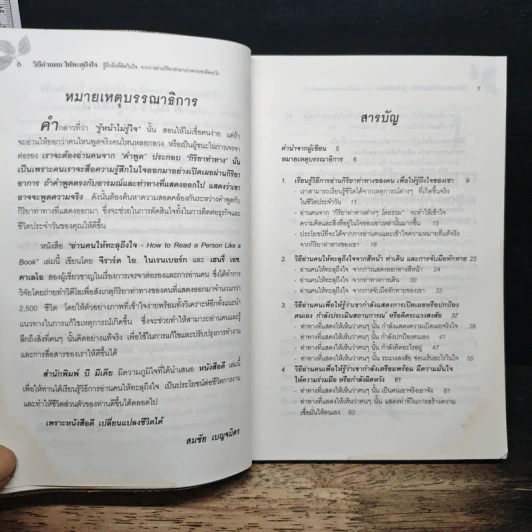 ๖ วิธีอ่านคน ให้ทะลุถึงใจ
หมายเหตุบรรณาธิการ
คำกล่าวที่ว่า "รู้หน้าไม่รู้ใจ" นั้น สอนให้ไม่เชื่อคนง่าย แต่ถ้า
จะอ่านให้ออกว่าคนไหนพูดจริงคนไหนหลอกลวง หรือเป็นผู้ชนะในการเจรจา
ต่อรอง เราจะต้องอ่านคนจาก "คำพูด" ประกอบ "กิริยาท่าทาง" นั่น
เป็นเพราะคนเราจะสื่อความรู้สึกในใจออกมาอย่างเปิดเผยผ่านกิริยา
อาการ ถ้าคำพูดตรงกับอารมณ์และท่าทางที่แสดงออกไป แสดงว่าเขา
อาจจะพูดความจริง ดังนั้นต้องค้นหาความสอดคล้องกันระหว่างคำพูดกับ
กิริยาท่าทางที่แสดงออกมา ซึ่งจะช่วยในการตัดสินใจทั้งในการติดต่อธุรกิจและ
ชีวิตประจำวันของคุณให้ดีขึ้น
หนังสือ "อ่านคนให้ทะลุถึงใจ - How to Read a Person Like a
Book" เล่มนี้ เขียนโดย จีราร์ด ไอ. ไนเรนเบอร์ก และ เฮนรี่ เอช.
คาเลโอ สองผู้เชี่ยวชาญในเรื่องการเจรจาต่อรองและการอ่านคน ซึ่งได้ทำการ
วิจัยโดยถ่ายทำวิดีโอเพื่อสังเกตุกิริยาท่าทางของคนที่แสดงออกมาจำนวนกว่า
2,500 ชีวิต โดยให้ตัวอย่างภาพที่เข้าใจง่ายพร้อมทั้งวิเคราะห์อีกทั้งแนะนำ
แนวทางในการแก้ไขเหตุการณ์เกิดขึ้น ซึ่งจะช่วยทำให้สามารถอ่านคนและรู้
ลึกถึงสิ่งที่คนๆ นั้นคิดอย่างแท้จริง เพื่อใช้ในการแก้ไขและปรับปรุงการทำงาน
และการสื่อสารของเราให้ดีขึ้นได้
สำนักพิมพ์ บี มีเดีย มีความภูมิใจที่ได้นำเสนอ หนังสือดี เล่มนี้
เพื่อให้ท่านได้เรียนรู้วิธีการอ่านคนให้ทะลุถึงใจ เป็นประโยชน์ต่อชีวิตการงาน
และทำให้ชีวิตส่วนตัวของท่านดีขึ้นได้ตลอดไป
เพราะหนังสือดี เปลี่ยนแปลงชีวิตได้
สมชัย เบญจมิตร
7
สารบัญ
คำนำจากผู้เขียน 5
หมายเหตุบรรณาธิการ 6
1. เรียนรู้วิธีการอ่านกิริยาท่าทางของคน เพื่อให้รู้ถึงใจของเขา 9
- เราสามารถเรียนรู้ชีวิตได้จากเหตุการณ์ต่างๆ ที่เกิดขึ้นจริง
ในชีวิตประจำวัน 11
- อ่านคนจาก "กิริยาท่าทางต่างๆ โดยรวม" จะทำให้เข้าใจ
ความคิดและสิ่งที่อยู่ในใจของเขาเหล่านั้นมากขึ้น 11
- ประโยชน์ที่จะได้จากการอ่านคนและเข้าใจความหมายที่แท้จริง
จากกิริยาท่าทางของเขา 18
2. วิธีอ่านคนให้ทะลุถึงใจจากสีหน้า ท่าเดิน และการจับมือทักทาย 23
- อ่านคนให้ทะลุถึงใจ จากการแสดงออกทางสีหน้า 24
- อ่านคนให้ทะลุถึงใจ จากท่าทางการเดิน 30
- อ่านคนให้ทะลุถึงใจ จากการจับมือทักทาย 33
3. วิธีอ่านคนเพื่อให้รู้ว่าเขากำลังแสดงการเปิดเผยหรือปกป้อง
ตนเอง กำลังประเมินสถานการณ์ หรือคิดระแวงสงสัย 37
- ท่าทางที่แสดงให้เห็นว่าคนๆ นั้น กำลังแสดงความเปิดเผยจริงใจ 38
- ท่าทางที่แสดงให้เห็นว่าคนๆ นั้น กำลังปกป้องตนเอง
- ท่าทางที่แสดงให้เห็นว่าคนๆ นั้น กำลังคิดอะไรอยู่ 47
- ท่าทางที่แสดงให้เห็นว่าคนๆ นั้น ระแวงสงสัย ซ่อนเร้นอะไรในใจ
4. วิธีอ่านคนเพื่อให้รู้ว่าเขากำลังเตรียมพร้อม มีความมั่นใจ
ให้ความร่วมมือ หรือกำลังผิดหวัง 61
- ท่าทางที่แสดงให้เห็นว่าคนๆ นั้น เป็นคนเอาจริงเอาจัง 61
- ท่าทางที่แสดงให้เห็นว่าคนๆ นั้น แสดงท่าทีในการสร้างความ
เชื่อมั่นให้ตนเอง 65